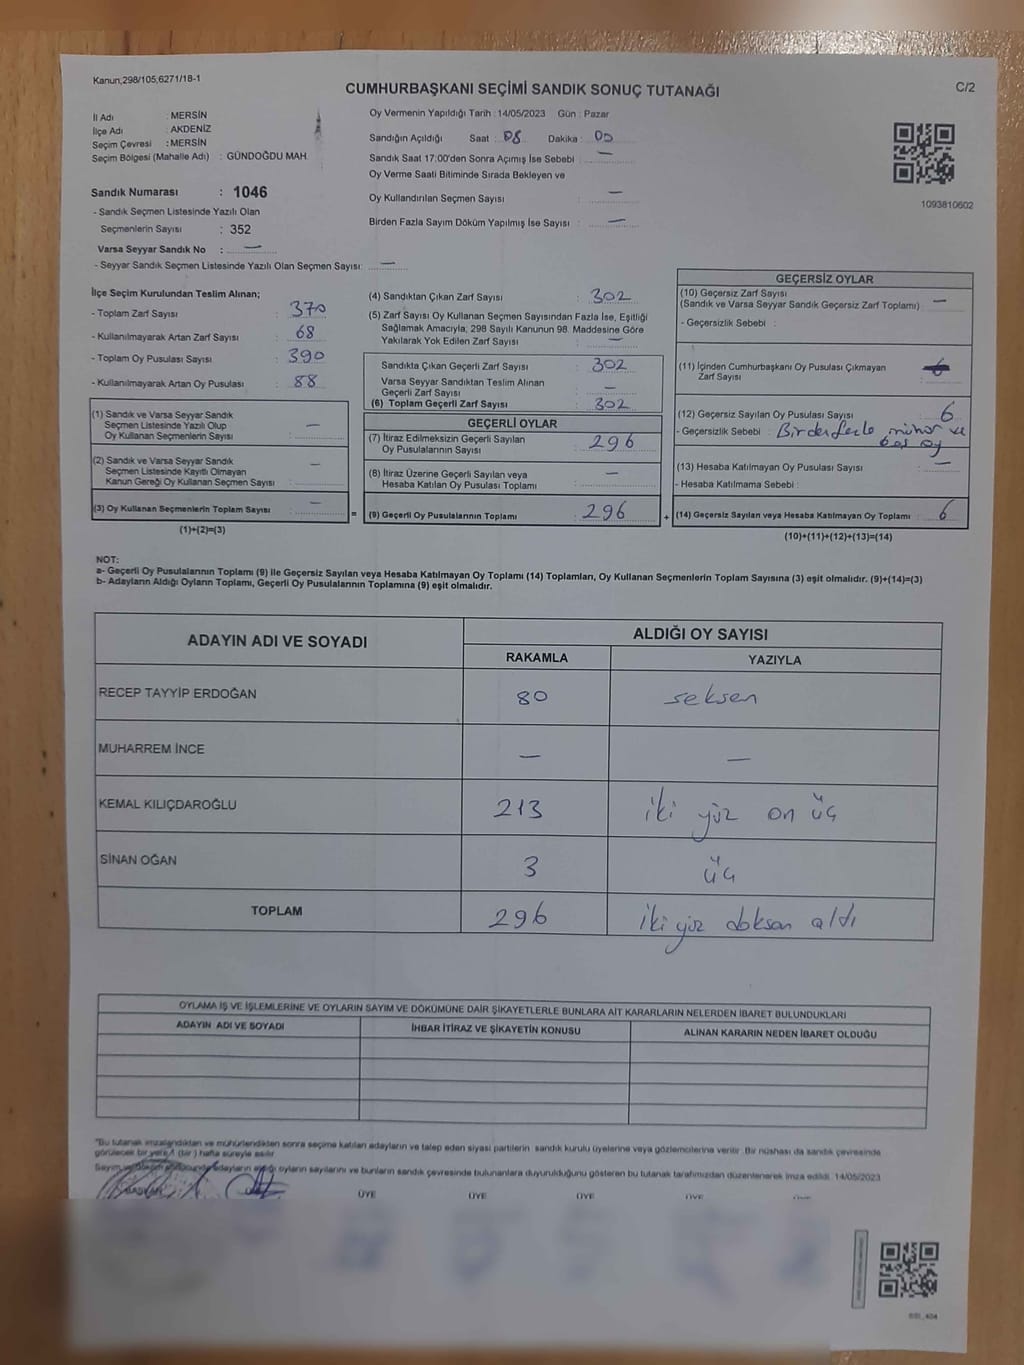 Kanun;298/105,6271/18-1
CUMHURBAŞKANI SEÇİMİ SANDIK SONUÇ TUTANAĞI
C/2
İl Adı : MERSİN
İlçe Adı : AKDENİZ
Seçim Çevresi : MERSİN
Seçim Bölgesi (Mahalle Adı) : GÜNDOĞDU MAH.
Sandık Numarası : 1046
- Sandık Seçmen Listesinde Yazılı Olan
Seçmenlerin Sayısı : 352
Varsa Seyyar Sandık No : —
- Seyyar Sandık Seçmen Listesinde Yazılı Olan Seçmen Sayısı: —
Oy Vermenin Yapıldığı Tarih :14/05/2023 Gün : Pazar
Sandığın Açıldığı Saat : 08 Dakika : 00
Sandık Saat 17:00'den Sonra Açımış İse Sebebi : —
Oy Verme Saati Bitiminde Sırada Bekleyen ve
Oy Kullandırılan Seçmen Sayısı : —
Birden Fazla Sayım Döküm Yapılmış İse Sayısı : —
1093810602
İlçe Seçim Kurulundan Teslim Alınan;
- Toplam Zarf Sayısı : 370
- Kullanılmayarak Artan Zarf Sayısı : 68
- Toplam Oy Pusulası Sayısı : 390
- Kullanılmayarak Artan Oy Pusulası : 88
(1) Sandık ve Varsa Seyyar Sandık
Seçmen Listesinde Yazılı Olup
Oy Kullanan Seçmenlerin Sayısı : —
(2) Sandık ve Varsa Seyyar Sandık
Seçmen Listesinde Kayıtlı Olmayan
Kanun Gereği Oy Kullanan Seçmen Sayısı : —
(3) Oy Kullanan Seçmenlerin Toplam Sayısı : —
(1)+(2)=(3)
(4) Sandıktan Çıkan Zarf Sayısı : 302
(5) Zarf Sayısı Oy Kullanan Seçmen Sayısından Fazla İse, Eşitliği
Sağlamak Amacıyla, 298 Sayılı Kanunun 98. Maddesine Göre
Yakılarak Yok Edilen Zarf Sayısı : —
Sandıkta Çıkan Geçerli Zarf Sayısı : 302
Varsa Seyyar Sandıktan Teslim Alınan
Geçerli Zarf Sayısı : —
(6) Toplam Geçerli Zarf Sayısı : 302
GEÇERLİ OYLAR
(7) İtiraz Edilmeksizin Geçerli Sayılan
Oy Pusulalarının Sayısı : 296
(8) İtiraz Üzerine Geçerli Sayılan veya
Hesaba Katılan Oy Pusulası Toplamı : —
= (9) Geçerli Oy Pusulalarının Toplamı : 296
GEÇERSİZ OYLAR
(10) Geçersiz Zarf Sayısı
(Sandık ve Varsa Seyyar Sandık Geçersiz Zarf Toplamı) : —
- Geçersizlik Sebebi :
(11) İçinden Cumhurbaşkanı Oy Pusulası Çıkmayan
Zarf Sayısı :
(12) Geçersiz Sayılan Oy Pusulası Sayısı : 6
- Geçersizlik Sebebi : Birden fazla mühür ve
boş oy
(13) Hesaba Katılmayan Oy Pusulası Sayısı : —
- Hesaba Katılmama Sebebi :
+ (14) Geçersiz Sayılan veya Hesaba Katılmayan Oy Toplamı : 6
(10)+(11)+(12)+(13)=(14)
NOT:
a- Geçerli Oy Pusulalarının Toplamı (9) ile Geçersiz Sayılan veya Hesaba Katılmayan Oy Toplamı (14) Toplamları, Oy Kullanan Seçmenlerin Toplam Sayısına (3) eşit olmalıdır. (9)+(14)=(3)
b- Adayların Aldığı Oyların Toplamı, Geçerli Oy Pusulalarının Toplamına (9) eşit olmalıdır.
ADAYIN ADI VE SOYADI
ALDIĞI OY SAYISI
RAKAMLA YAZIYLA
RECEP TAYYİP ERDOĞAN 80 seksen
MUHARREM İNCE — —
KEMAL KILIÇDAROĞLU 213 iki yüz on üç
SİNAN OĞAN 3 üç
TOPLAM 296 iki yüz doksan altı
OYLAMA İŞ VE İŞLEMLERİNE VE OYLARIN SAYIM VE DÖKÜMÜNE DAİR ŞİKAYETLERLE BUNLARA AİT KARARLARIN NELERDEN İBARET BULUNDUKLARI
ADAYIN ADI VE SOYADI İHBAR İTİRAZ VE ŞİKAYETİN KONUSU ALINAN KARARIN NEDEN İBARET OLDUĞU
"Bu tutanak imzalandıktan ve mühürlendikten sonra seçime katılan adayların ve talep eden siyasi partilerin sandık kurulu üyelerine veya gözlemcilerine verilir. Bir nüshası da sandık çevresinde
görülecek bir yere 1 (bir) hafta süreyle asılır.
adayların aldığı oyların sayılarını ve bunların sandık çevresinde bulunanlara duyurulduğunu gösteren bu tutanak tarafımızdan düzenlenerek imza edildi. 14/05/2023
BAŞKAN ÜYE ÜYE ÜYE ÜYE